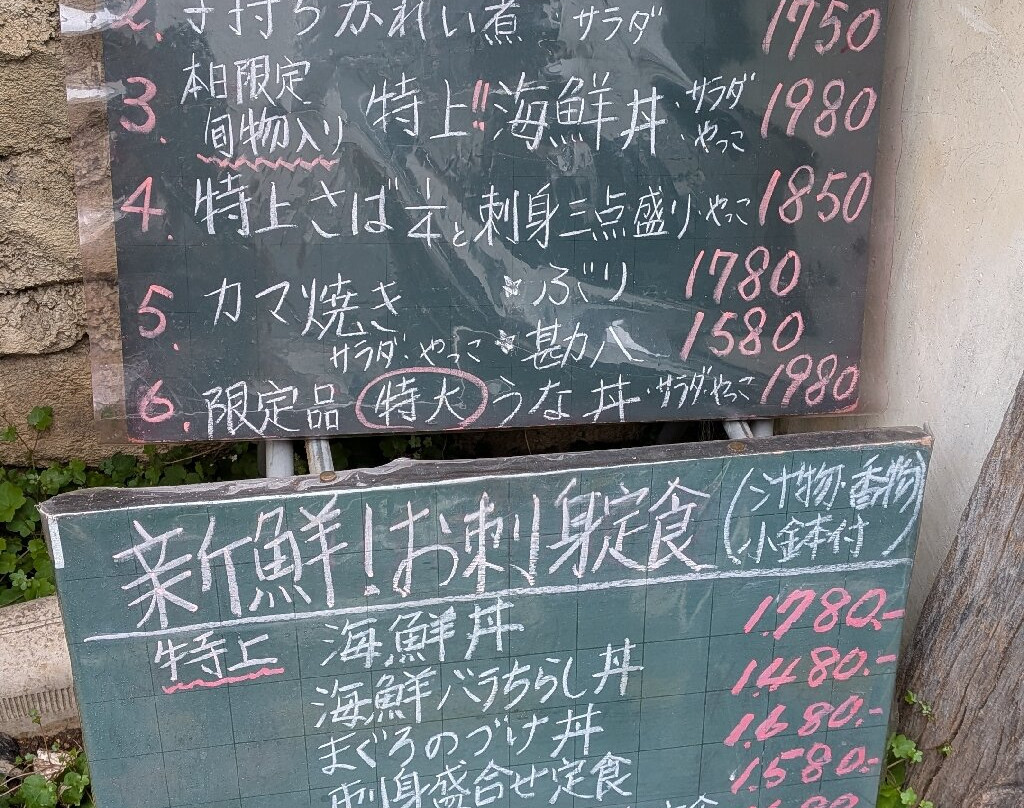 2. 子持ちかれい煮 サラダ 1750
3. 本日限定 旬物入り 特上!!海鮮丼・サラダ やっこ 1980
4. 特上さば1/4と刺身三点盛り・やっこ 1850
5. カマ焼き ぶり 1780
サラダ・やっこ 勘八 1580
6. 限定品 特大 うな丼・サラダ・やっこ 1980
新鮮!お刺身定食 (汁物・香物 小鉢付)
特上 海鮮丼 1.780.-
海鮮バラちらし丼 1.480.-
まぐろのづけ丼 1.680.-
刺身盛合せ定食 1.580.-